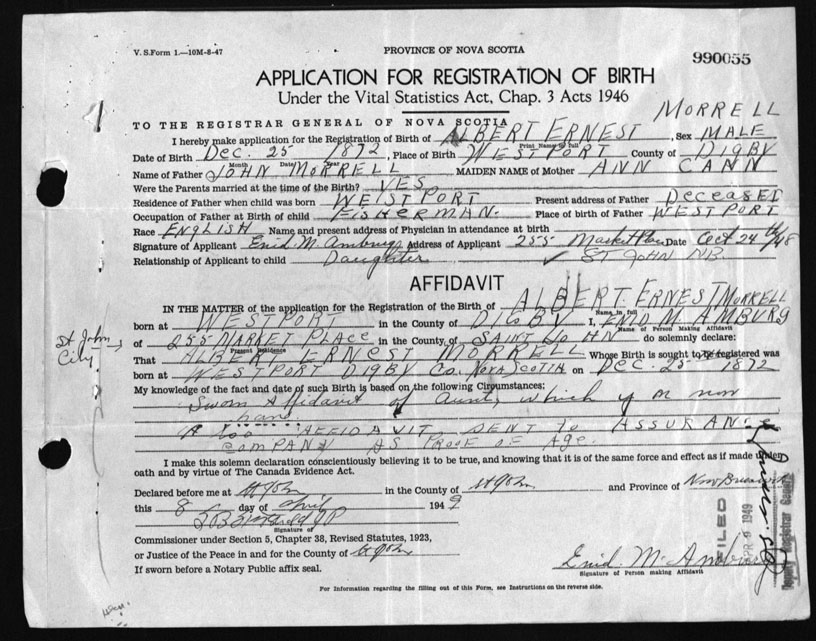 V. S. Form 1.—10M-8-47
PROVINCE OF NOVA SCOTIA
990055
APPLICATION FOR REGISTRATION OF BIRTH
Under the Vital Statistics Act, Chap. 3 Acts 1946
TO THE REGISTRAR GENERAL OF NOVA SCOTIA
MORRELL
I hereby make application for the Registration of Birth of ALBERT ERNEST, Sex MALE
Print Name in full
Date of Birth Dec. 25 1872, Place of Birth WESTPORT County of DIGBY
Month Date Year
Name of Father JOHN MORRELL MAIDEN NAME of Mother ANN CANN
Were the Parents married at the time of the Birth? YES
Residence of Father when child was born WESTPORT Present address of Father DECEASED
Occupation of Father at Birth of child FISHERMAN. Place of birth of Father WESTPORT
Race ENGLISH Name and present address of Physician in attendance at birth
Signature of Applicant Enid M. Amburg Address of Applicant 255 Market Place Date Oct 24th/48
Relationship of Applicant to child Daughter ST JOHN NB
AFFIDAVIT
IN THE MATTER of the application for the Registration of the Birth of ALBERT ERNEST MORRELL
Name in full
born at WESTPORT in the County of DIGBY I, ENID M. AMBURG
Name of Person Making Affidavit
St John City
of 255 MARKET PLACE in the County of SAINT JOHN do solemnly declare:
Present Residence
That ALBERT ERNEST MORRELL Whose Birth is sought to be registered was
born at WESTPORT DIGBY Co. NOVA SCOTIA on DEC. 25 1872
My knowledge of the fact and date of such Birth is based on the following Circumstances:
Sworn Affidavit of Aunt, which is on
hand.
AFFIDAVIT SENT TO ASSURANCE
COMPANY AS PROOF OF AGE.
I make this solemn declaration conscientiously believing it to be true, and knowing that it is of the same force and effect as if made under
oath and by virtue of The Canada Evidence Act.
Declared before me at St John in the County of St John and Province of New Brunswick
this 8 day of April 1949
JP
Signature of
Commissioner under Section 5, Chapter 38, Revised Statutes, 1923,
or Justice of the Peace in and for the County of St John
If sworn before a Notary Public affix seal.
Enid M. Amburg
Signature of Person making Affidavit
FILED
APR 9 1949
Deputy Registrar General
For Information regarding the filling out of this Form, see Instructions on the reverse side.